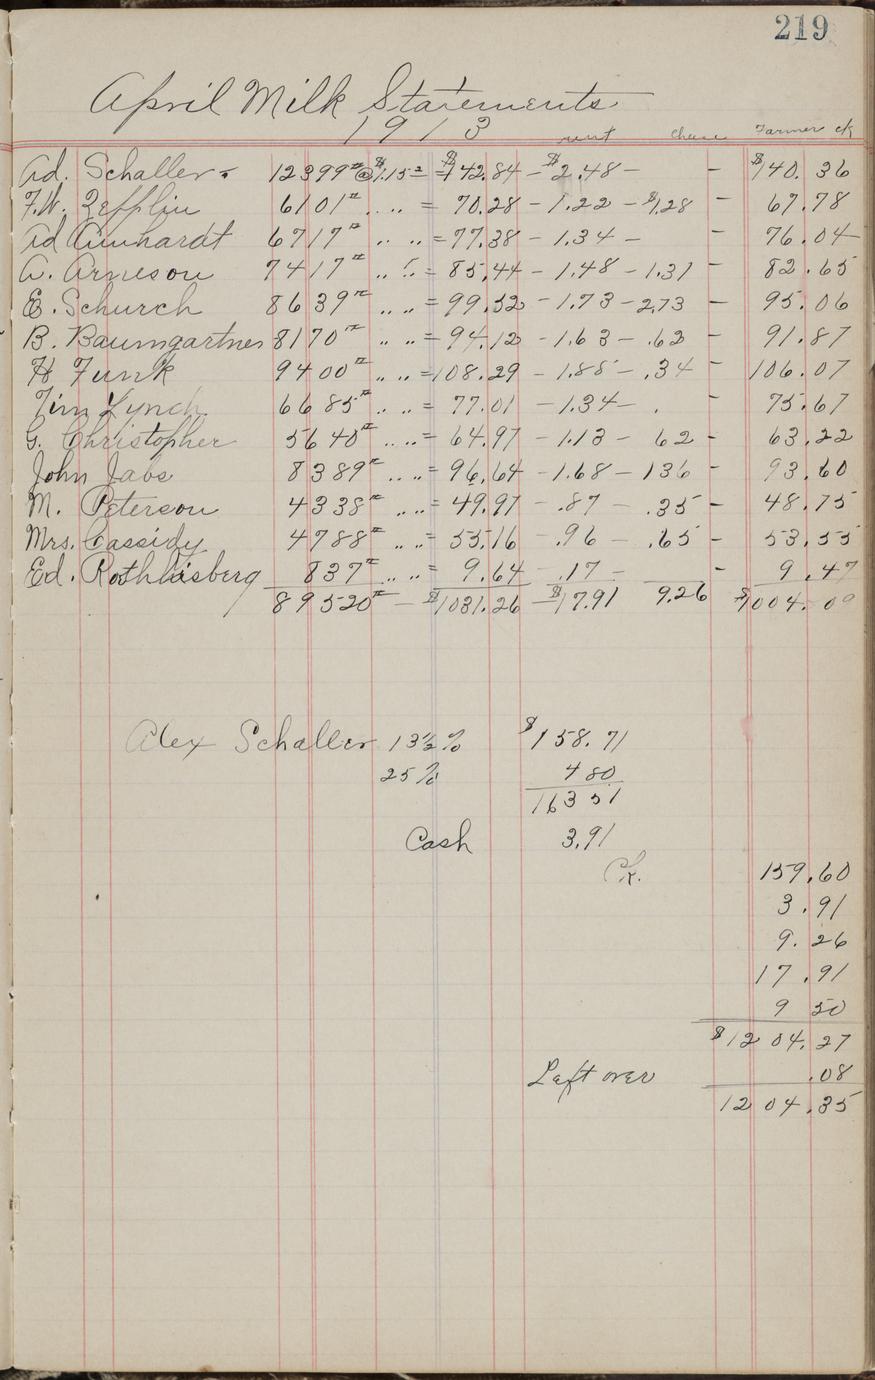 219
April Milk Statements
1913 rent cheese Farmer ck
Ad. Schaller - 12399# @ $1.15 2 = $142.84 - $2.48 - - $140.36
F.W. Zefflin 6101# .. .. = 70.28 - 1.22 - $1.28 - 67.78
Ad Amhardt 6717# .. .. = 77.38 - 1.34 - 76.04
A. Arneson 7417# .. .. = 85.44 - 1.48 - 1.31 - 82.65
E. Schurch 8639# .. .. = 99.52 - 1.73 - 2.73 - 95.06
B. Baumgartner 8170# .. .. = 94.12 - 1.63 - .62 - 91.87
H Funk 9400# .. .. = 108.29 - 1.88 - .34 - 106.07
Tim Lynch 6685# .. .. = 77.01 - 1.34 - . - 75.67
G. Christopher 5640# .. .. = 64.97 - 1.13 - 62 - 63.22
John Jabs 8389# .. .. = 96.64 - 1.68 - 136 - 93.60
M. Peterson 4338# .. .. = 49.97 - .87 - .35 - 48.75
Mrs. Cassidy 4788# .. .. = 55.16 - .96 - .65 - 53.55
Ed. Rothlisberg 837# .. .. = 9.64 - .17 - - 9.47
89520# - $1031.26 - $17.91 9.26 $1004.09
Alex Schaller 13½% $158.71
25% 4 80
163 51
Cash 3.91
Ck. 159.60
3.91
9.26
17.91
9 50
$1204.27
Left over .08
1204.35